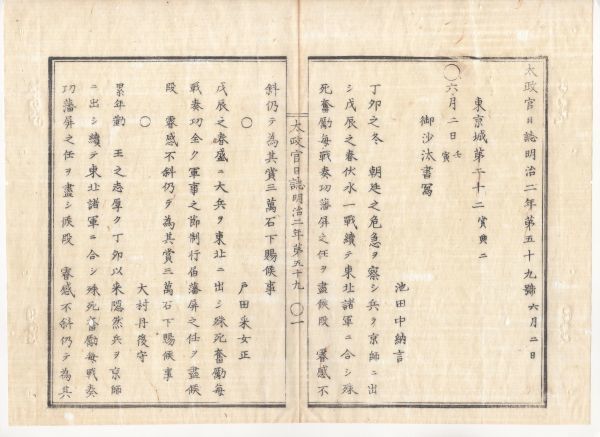 太政官日誌明治二年第五十九號 六月二日
東京城第二十二 賞典二
○六月二日 壬寅
御沙汰書寫
池田中納言
丁卯之冬 朝廷之危急ヲ察シ兵ヲ京師ニ出
シ戊辰之春伏水一戰續テ東北諸軍ニ合シ殊
死奮勵每戰奏功藩屏之任ヲ盡候段 叡感不
斜仍テ為其賞三萬石下賜候事
○
戸田采女正
戊辰之春盛ニ大兵ヲ東北ニ出シ殊死奮勵每
戰奏功全ク軍事之節制行届藩屏之任ヲ盡候
段 叡感不斜仍テ為其賞三萬石下賜候事
○
大村丹後守
累年勤 王之志厚ク丁卯以來隠然兵ヲ京師
ニ出シ續テ東北諸軍ニ合シ殊死奮勵每戰奏
功藩屏之任ヲ盡シ候段 叡感不斜仍テ為其
太政官日誌明治二年第五十九 ○一